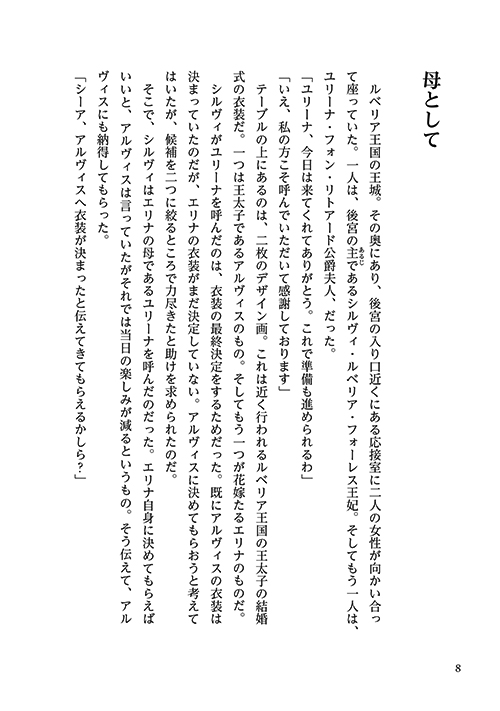 母として
ルベリア王国の王城。その奥にあり、後宮の入り口近くにある応接室に二人の女性が向かい合っ
て座っていた。一人は、後宮の主であるシルヴィ・ルベリア・フォーレス王妃。そしてもう一人は、
あるじ
ユリーナ・フォン・リトアード公爵夫人、だった。
「ユリーナ、今日は来てくれてありがとう。これで準備も進められるわ」
「いえ、私の方こそ呼んでいただいて感謝しております」
テーブルの上にあるのは、二枚のデザイン画。これは近く行われるルベリア王国の王太子の結婚
式の衣装だ。一つは王太子であるアルヴィスのもの。そしてもう一つが花嫁たるエリナのものだ。
シルヴィがユリーナを呼んだのは、衣装の最終決定をするためだった。既にアルヴィスの衣装は
決まっていたのだが、エリナの衣装がまだ決定していない。アルヴィスに決めてもらおうと考えて
はいたが、候補を二つに絞るところで力尽きたと助けを求められたのだ。
そこで、シルヴィはエリナの母であるユリーナを呼んだのだった。エリナ自身に決めてもらえば
いいと、アルヴィスは言っていたがそれでは当日の楽しみが減るというもの。そう伝えて、アル
ヴィスにも納得してもらった。
「シーア、アルヴィスへ衣装が決まったと伝えてきてもらえるかしら？」
8